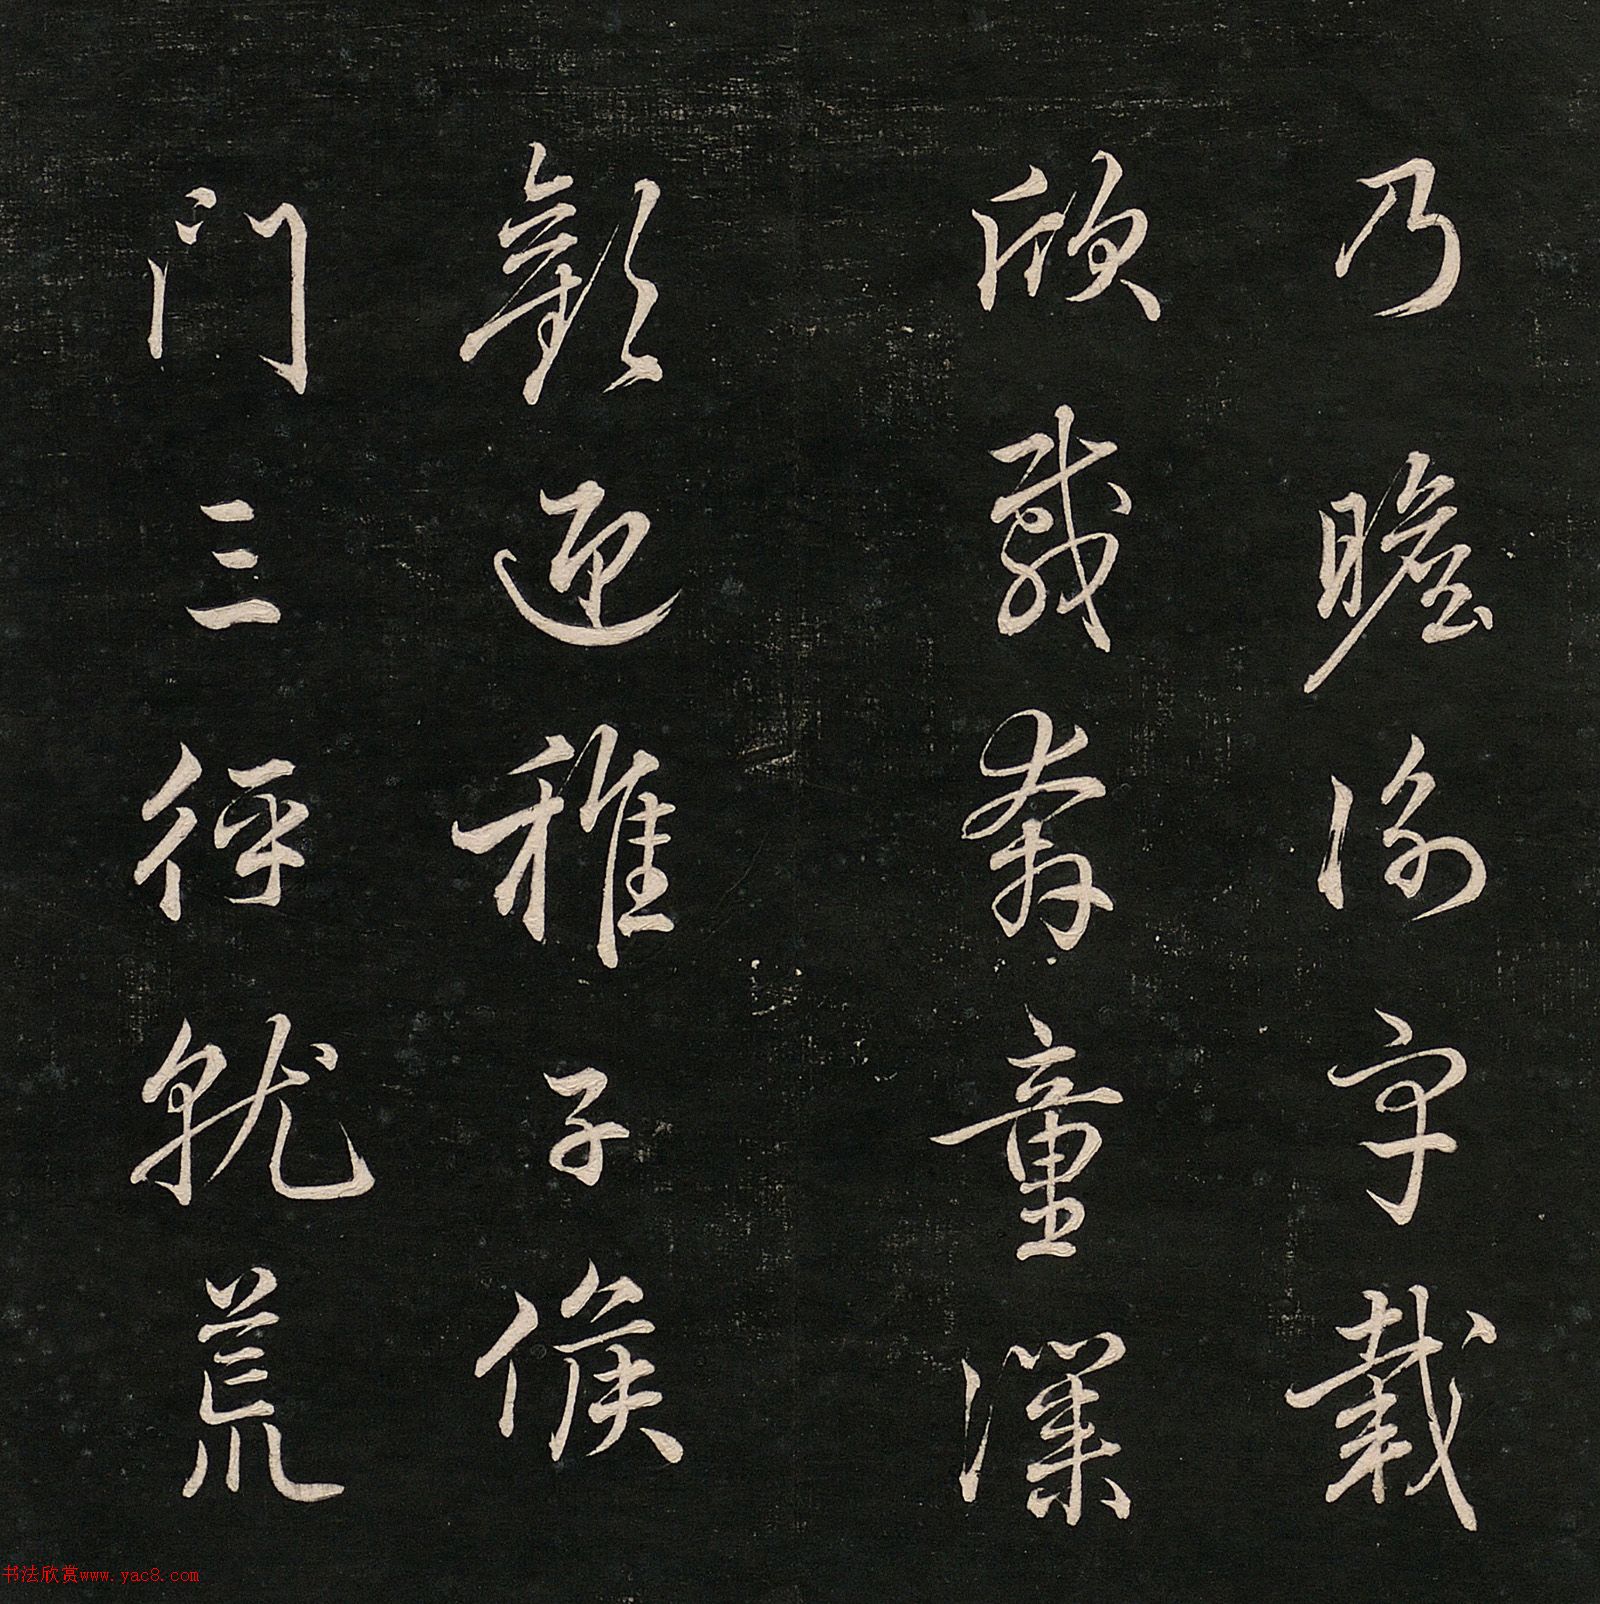 乃瞻衡宇載
欣載奔童僕
歡迎稚子候
門三徑就荒
书法欣赏www.yac8.com